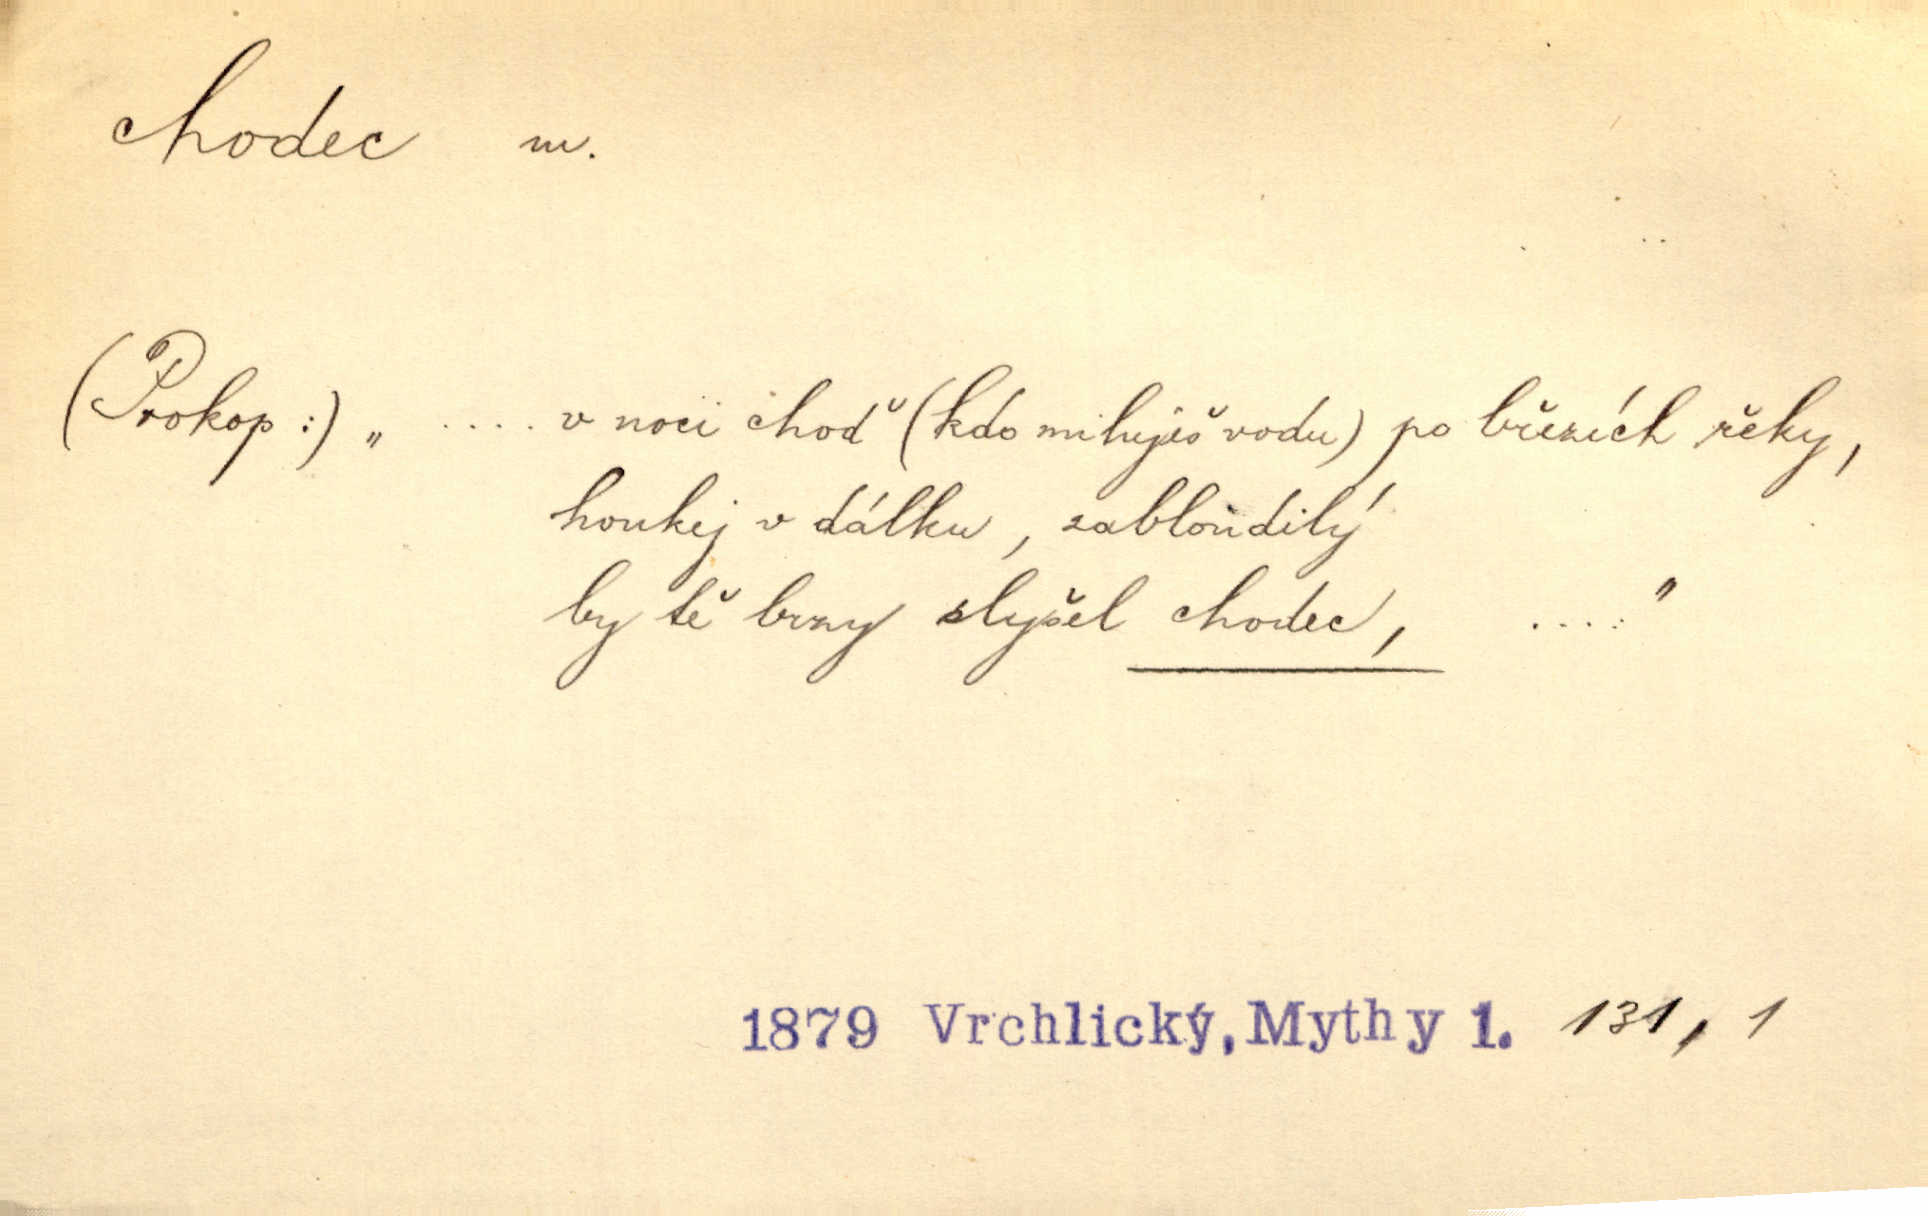 chodec m.
(Prokop:) „ ..... v noci choď (kdo miluješ vodu) po březích řeky,
houkej v dálku, zabloudilý
by tě brzy slyšel chodec, ....."
1879 Vrchlický, Mythy 1. 131, 1